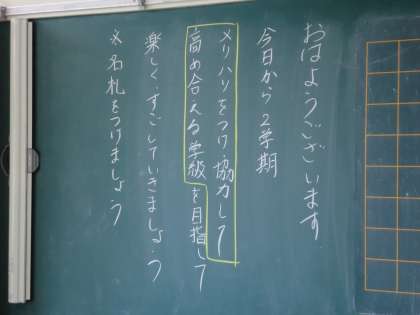 おはようございます
今日から2学期
メリハリをつけ協力して
高め合える学級を目指して
楽しくすごしていきましょう
※名札をつけましょう